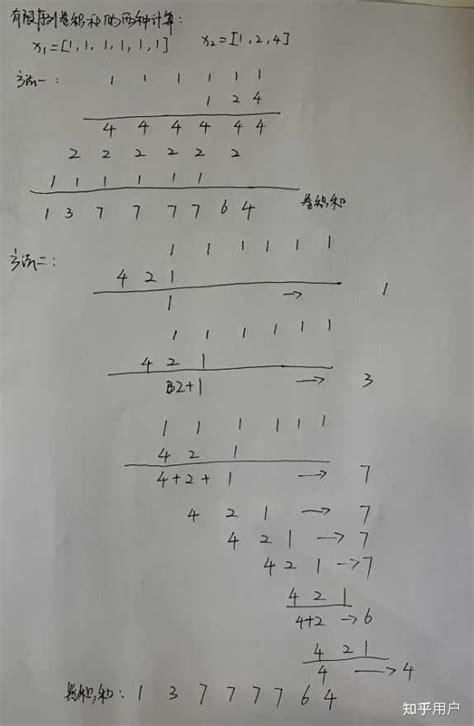 有限序列卷积和的两种计算:
x₁=[1,1,1,1,1,1]   x₂=[1,2,4]
方法一: 1 1 1 1 1 1
1 2 4
4 4 4 4 4 4
2 2 2 2 2 2
1 1 1 1 1 1
1 3 7 7 7 7 6 4 卷积和
方法二: 1 1 1 1 1 1
4 2 1
1 → 1
1 1 1 1 1 1
4 2 1
2+1 → 3
1 1 1 1 1 1
4 2 1
4+2+1 → 7
4 2 1 → 7
4 2 1 → 7
4 2 1 → 7
4 2 1
4+2 → 6
4 2 1
4 → 4
卷积和: 1 3 7 7 7 7 6 4
知乎用户